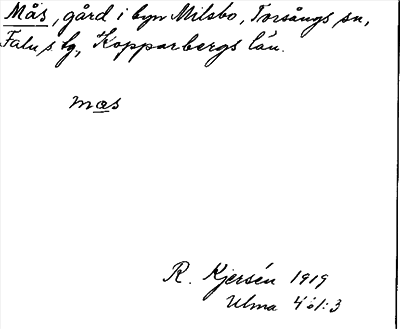 Mås, gård i byn Milsbo, Torsångs sn,
Falu s lg, Kopparbergs län.
mæs
R. Kjersén 1919
Ulma 461:3